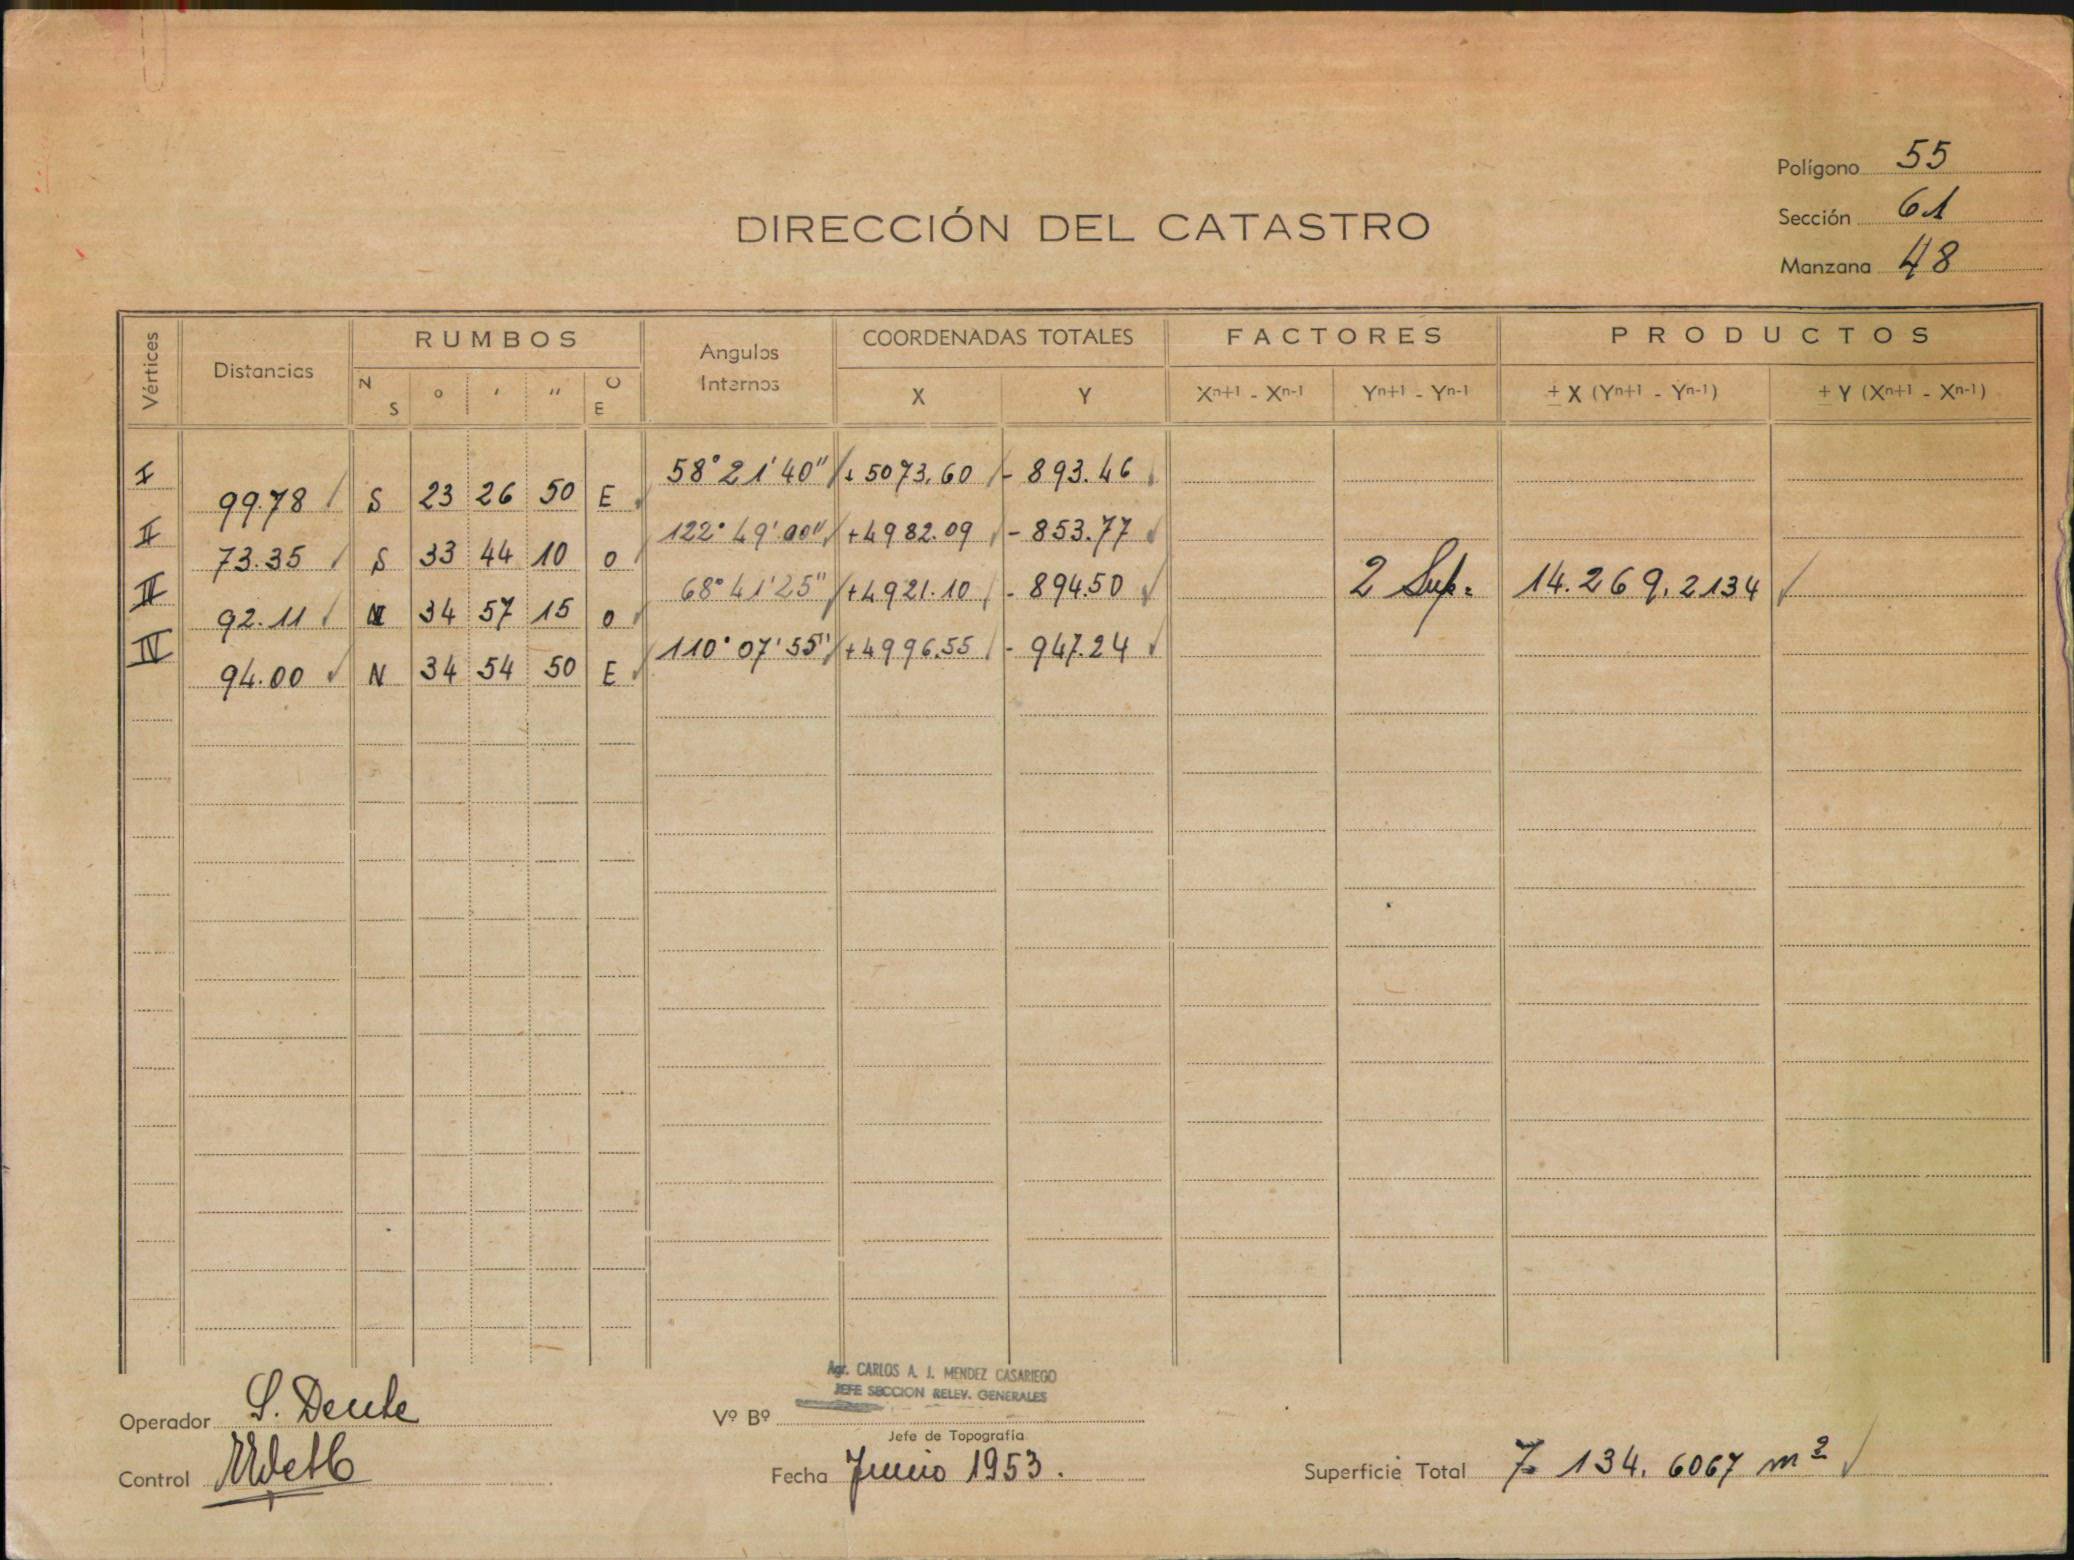 Polígono 55
DIRECCIÓN DEL CATASTRO
Sección 61
Manzana 48
Vértices
Distancias
RUMBOS
N S
° ' "
O E
Angulos Internos
COORDENADAS TOTALES
X Y
FACTORES
Xn+1 - Xn-1 Yn+1 - Yn-1
PRODUCTOS
± X (Yn+1 - Yn-1) ± Y (Xn+1 - Xn-1)
I 58° 21' 40" + 5073.60 - 893.46
99.78 S 23 26 50 E
II 122° 49' 00" +4982.09 - 853.77
73.35 S 33 44 10 O
III 68° 41' 25" +4921.10 - 894.50 2 Sup. 14.269.2134
92.11 N 34 57 15 O
IV 110° 07' 55" +4996.55 - 947.24
94.00 N 34 54 50 E
Agr. CARLOS A. J. MENDEZ CASARIEGO
JEFE SECCION RELEV. GENERALES
Operador S. Deube
Vº Bº
Jefe de Topografía
Control
Fecha Junio 1953.
Superficie Total 7. 134. 6067 m²